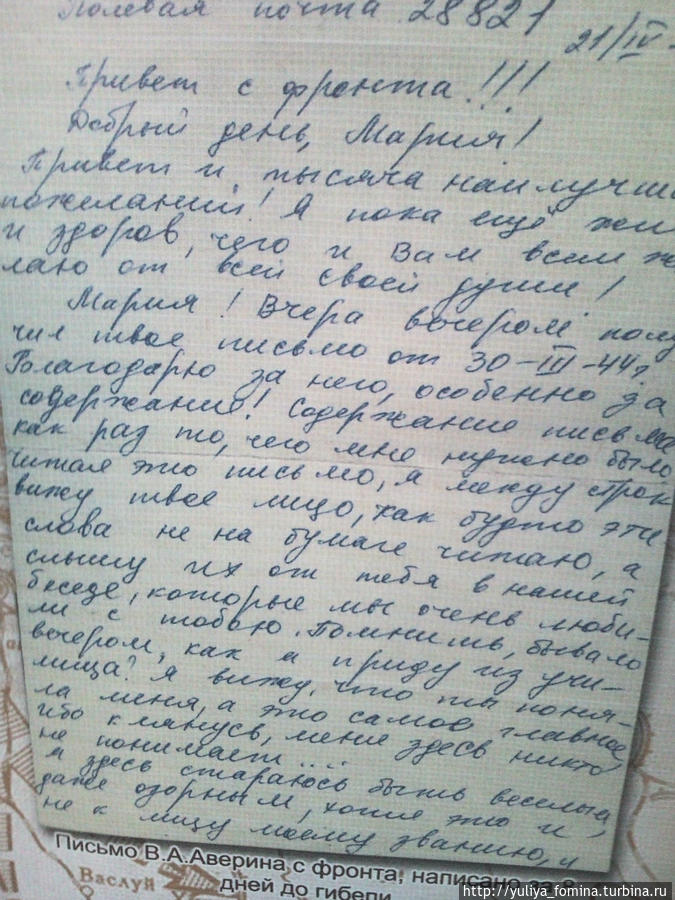 Полевая почта 28821
21/IV-
Привет с фронта!!!
Добрый день, Мария!
Привет и тысяча наилучши
пожеланий! Я пока ещё жи
и здоров, чего и Вам всем же
лаю от всей своей души!
Мария! Вчера вечером полу
чил твое письмо от 30-III-44г.
Благодарю за него, особенно за
содержание! Содержание письма
как раз то, чего мне нужно было
Читая это письмо, я между строк
вижу твое лицо, как будто эти
слова не на бумаге читаю, а
слышу их от тебя в нашей
беседе, которые мы очень люби-
ли с тобою. Помнишь, бывало
вечером, как я приду из учи-
лища? Я вижу, что ты поня-
ла меня, а это самое главное,
ибо клянусь, меня здесь никто
не понимает...
Я здесь стараюсь быть веселым,
даже озорным, хотя это и
не к лицу моему званию, и
Письмо В.А.Аверина с фронта, написано за 8
дней до гибели
http://yuliya_fomina.turbina.ru